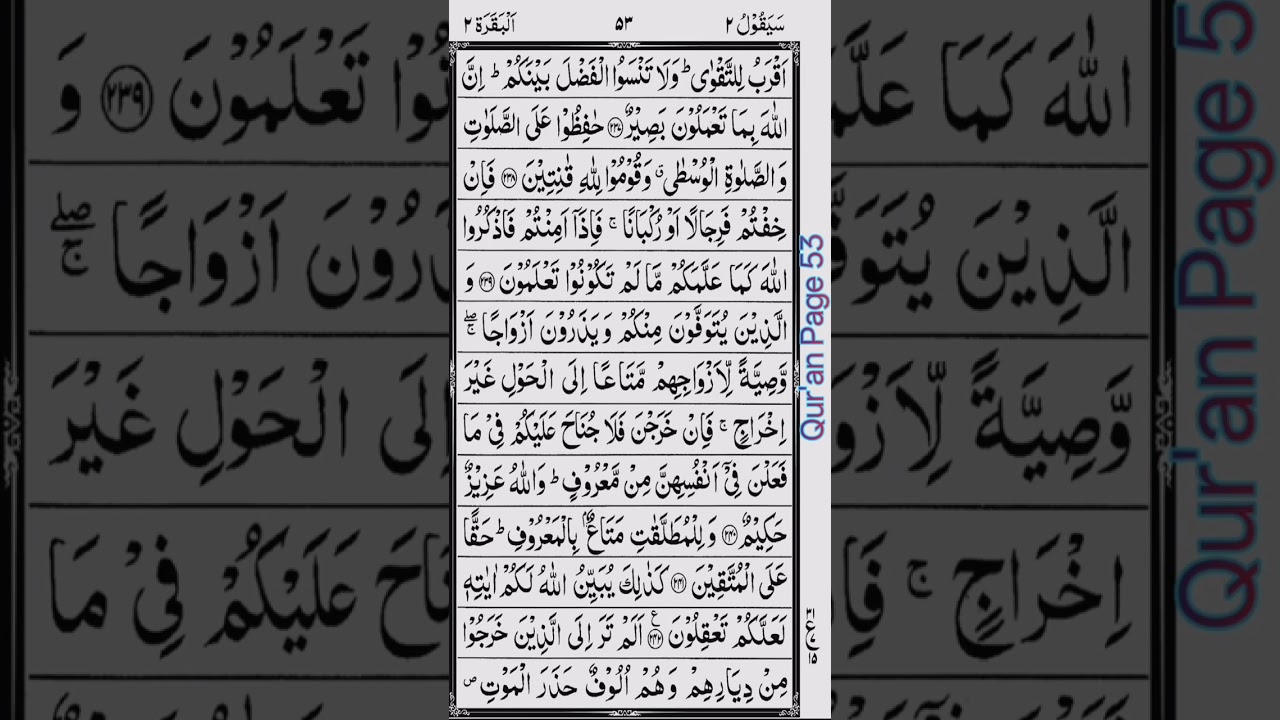 سَيَقُوْلُ ٢ ٥٣ اَلْبَقَرَة ٢
اَقْرَبُ لِلتَّقْوٰى ؕ وَلَا تَنْسَوُا الْفَضْلَ بَيْنَكُمْ ؕ اِنَّ
اللّٰهَ بِمَا تَعْمَلُوْنَ بَصِيْرٌ ﴿٢٣٧﴾ حٰفِظُوْا عَلَى الصَّلَوٰتِ
وَالصَّلٰوةِ الْوُسْطٰى ۗ وَقُوْمُوْا لِلّٰهِ قٰنِتِيْنَ ﴿٢٣٨﴾ فَاِنْ
خِفْتُمْ فَرِجَالًا اَوْ رُكْبَانًا ۚ فَاِذَاۤ اَمِنْتُمْ فَاذْكُرُوا
اللّٰهَ كَمَا عَلَّمَكُمْ مَّا لَمْ تَكُوْنُوْا تَعْلَمُوْنَ ﴿٢٣٩﴾ وَ
الَّذِيْنَ يُتَوَفَّوْنَ مِنْكُمْ وَيَذَرُوْنَ اَزْوَاجًا ۖۚ
وَّصِيَّةً لِّاَزْوَاجِهِمْ مَّتَاعًا اِلَى الْحَوْلِ غَيْرَ
اِخْرَاجٍ ۚ فَاِنْ خَرَجْنَ فَلَا جُنَاحَ عَلَيْكُمْ فِىْ مَا
فَعَلْنَ فِىْۤ اَنْفُسِهِنَّ مِنْ مَّعْرُوْفٍ ؕ وَاللّٰهُ عَزِيْزٌ
حَكِيْمٌ ﴿٢٤٠﴾ وَلِلْمُطَلَّقٰتِ مَتَاعٌۢ بِالْمَعْرُوْفِ ؕ حَقًّا
عَلَى الْمُتَّقِيْنَ ﴿٢٤١﴾ كَذٰلِكَ يُبَيِّنُ اللّٰهُ لَكُمْ اٰيٰتِهٖ
لَعَلَّكُمْ تَعْقِلُوْنَ ﴿٢٤٢﴾ اَلَمْ تَرَ اِلَى الَّذِيْنَ خَرَجُوْا
مِنْ دِيَارِهِمْ وَهُمْ اُلُوْفٌ حَذَرَ الْمَوْتِ ۪
Qur'an Page 53